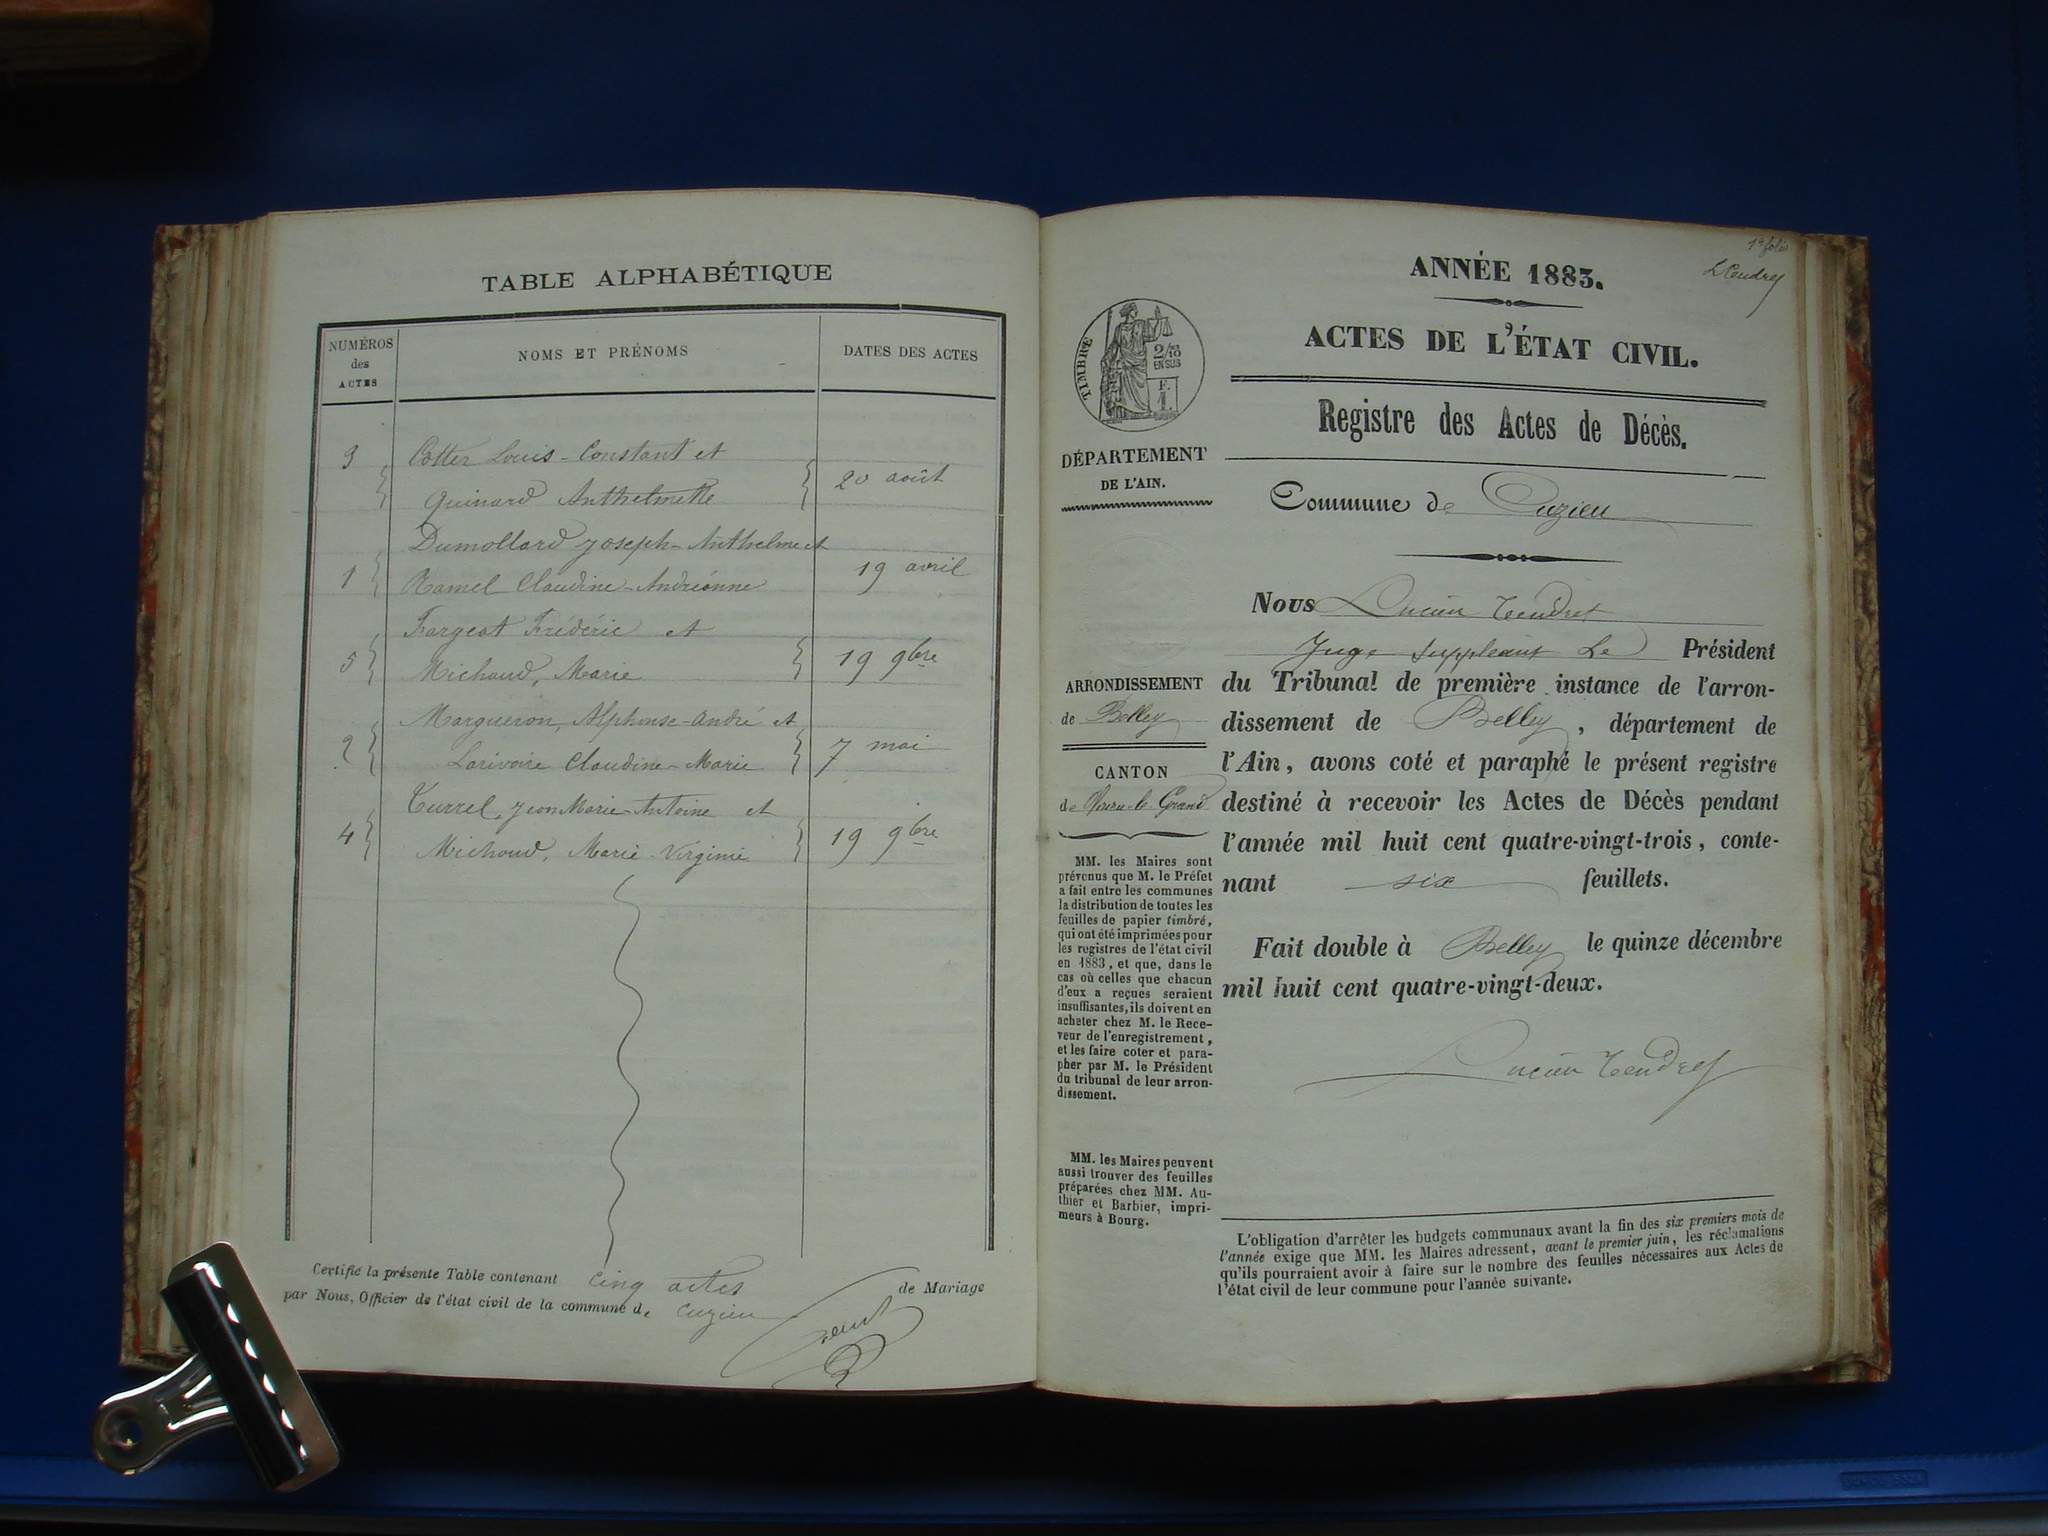 TABLE ALPHABÉTIQUE
NUMÉROS
des
ACTES
NOMS ET PRÉNOMS
DATES DES ACTES
3
Cotter Louis-Constant et
Quinard Anthelmette
20 août
Dumollard Joseph-Anthelme et
1
Ramel Claudine-Andréonne
19 avril
Fargeot Frédéric et
5
Michaud, Marie
19 9bre
Margueron, Alphonse-André et
2
Larivoire Claudine-Marie
7 mai
Turrel, Jean Marie-Antoine et
4
Michoud, Marie-Virginie
19 9bre
Certifié la présente Table contenant cinq actes de Mariage
par Nous, Officier de l'état civil de la commune de Cuzieu
1er folio
LTendret
ANNÉE 1883.
ACTES DE L'ÉTAT CIVIL.
Registre des Actes de Décès.
Commune de Cuzieu
TIMBRE
2/10
EN SUS
F.
1.
DÉPARTEMENT
DE L'AIN.
ARRONDISSEMENT
de Belley
CANTON
de Virieu-le-Grand
MM. les Maires sont
prévenus que M. le Préfet
a fait entre les communes
la distribution de toutes les
feuilles de papier timbré,
qui ont été imprimées pour
les registres de l'état civil
en 1883, et que, dans le
cas où celles que chacun
d'eux a reçues seraient
insuffisantes, ils doivent en
acheter chez M. le Rece-
veur de l'enregistrement,
et les faire coter et para-
pher par M. le Président
du tribunal de leur arron-
dissement.
MM. les Maires peuvent
aussi trouver des feuilles
préparées chez MM. Au-
thier et Barbier, impri-
meurs à Bourg.
Nous Lucien Tendret
Juge suppléant Le Président
du Tribunal de première instance de l'arron-
dissement de Belley, département de
l'Ain, avons coté et paraphé le présent registre
destiné à recevoir les Actes de Décès pendant
l'année mil huit cent quatre-vingt-trois, conte-
nant six feuillets.
Fait double à Belley le quinze décembre
mil huit cent quatre-vingt-deux.
Lucien Tendret
L'obligation d'arrêter les budgets communaux avant la fin des six premiers mois de
l'année exige que MM. les Maires adressent, avant le premier juin, les réclamations
qu'ils pourraient avoir à faire sur le nombre des feuilles nécessaires aux Actes de
l'état civil de leur commune pour l'année suivante.